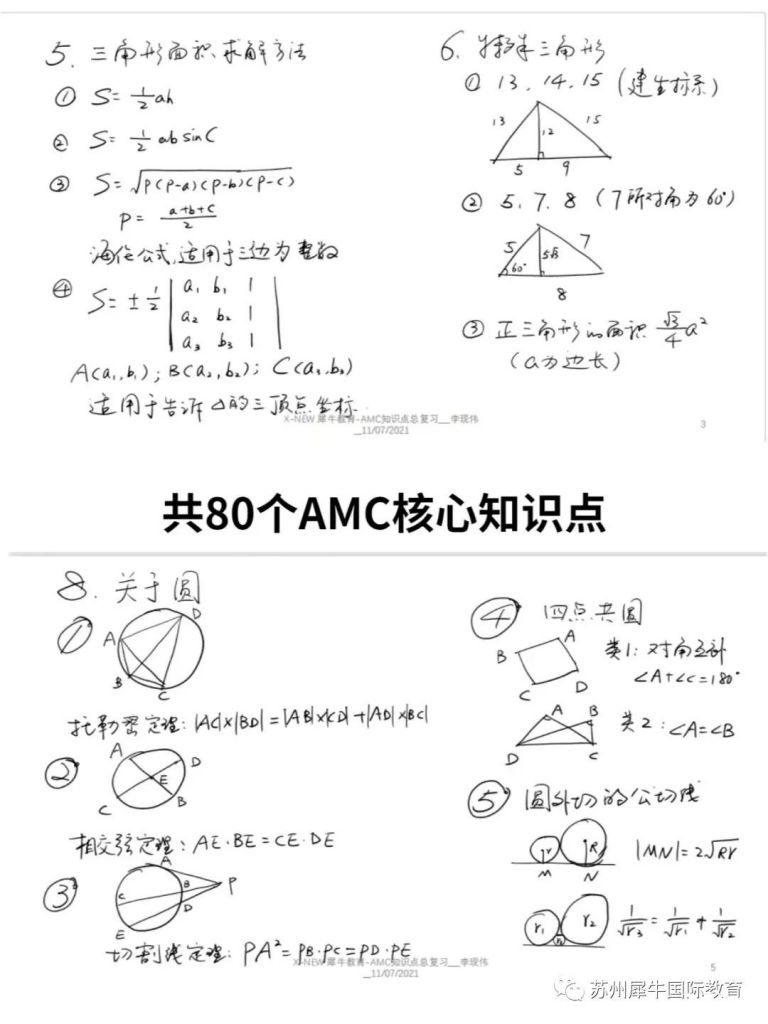 5. 三角形面积求解方法
① S= 1/2 ah
② S= 1/2 ab sinC
③ S=√P(P-a)(P-b)(P-c)
P= a+b+c/2
海伦公式,适用于三边为整数
④ S= ± 1/2 | a₁ b₁ 1 |
| a₂ b₂ 1 |
| a₃ b₃ 1 |
A(a₁,b₁); B(a₂,b₂); C(a₃,b₃)
适用于告诉△的三顶点坐标.
6. 特殊三角形
① 13, 14, 15 (建坐标系)
13 12 15
5 9
② 5, 7, 8 (7所对角为60°)
5 5√3 7
60°
8
③ 正三角形的面积 √3/4 a²
(a为边长)
X-NEW 犀牛教育-AMC知识点总复习__李现伟
_11/07/2021
3
共80个AMC核心知识点
8. 关于圆
①
D
A
B
C
托勒密定理: |AC|×|BD|=|AB|×|CD|+|AD|×|BC|
②
A D
E
C B
相交弦定理: AE·BE=CE·DE
③
A
B P
C D
E
切割线定理: PA²=PB·PC=PD·PE
④ 四点共圆
A
B
C D
类1: 对角互补
∠A+∠C=180°
A B
D C
类2: ∠A=∠B
⑤ 圆外切的公切线
r R
M N
|MN|=2√Rr
r₁ r₂
1/√r₃ = 1/√r₁ + 1/√r₂
X-NEW 犀牛教育-AMC知识点总复习__李现伟
_11/07/2021
5
苏州犀牛国际教育